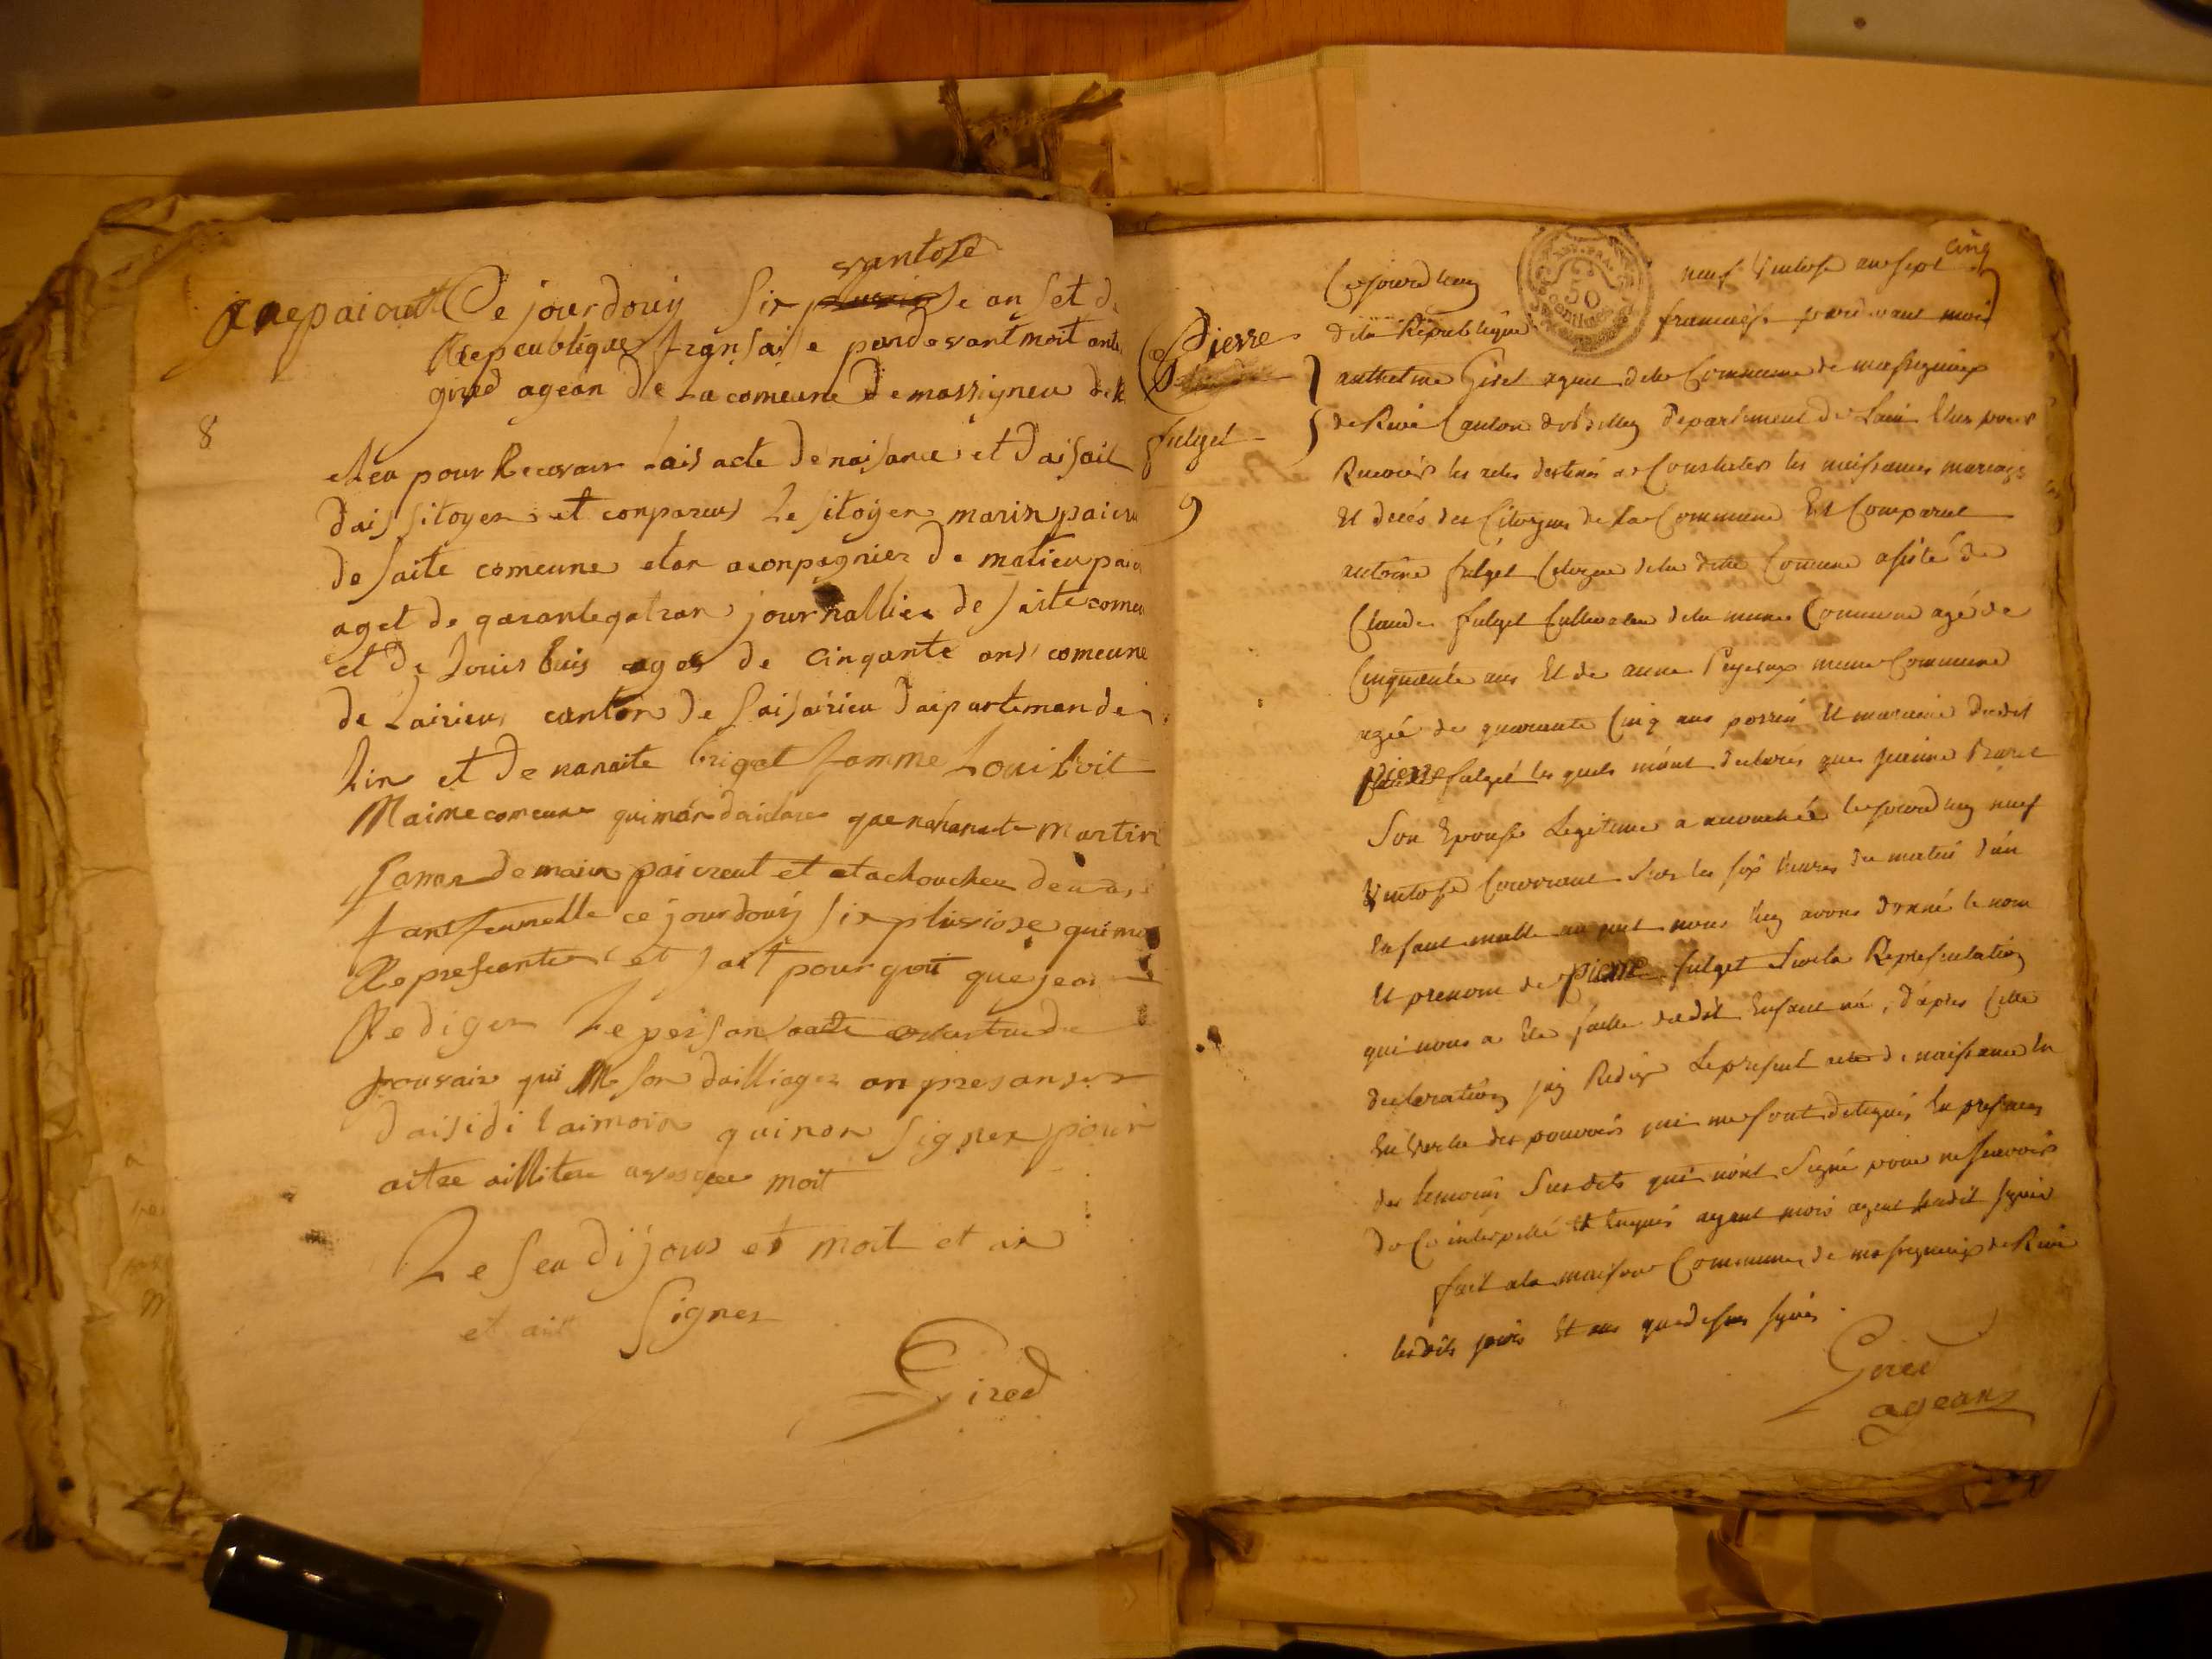 vantose
Ce jourdouy six pluviose an set d
Republique fransaise pardevant moit ante
gired agean De La comeune De massigneu de R
8
eleu pour Recevair lais acte De naisance et Daisait
dais sitoyen et conparus Le sitoyen marin paicru
de saite comeune etan aconpagnier De matieu paic
aget de garantegatran journallier de saite comeu
et De Louis buis ages de cinqante ans comeune
de Lairieu canton De saisairieu Daipartemandei
Lin et De nanaite brigat famme Loui boit
Maime comeune qui mon daiclare que martin
famme de marin paicreut et etachouchee deu
fans feumelle ce jourdouy six pluviose qui mon
Represeanter et sait pour quoit que jean
Rediger Le peisan acte avartu de
pouvair qui M son dailliager an presanser
daisidi taimoin qui non signer pour
aitre aillitere avesque moit
Le seudi jour et moit et an
et ait signer
Gired
cinq
Cejourd huy neuf Ventose an sept
dela République francaise pardevant moi
Pierre
anthelme Giret agent dela Commune de massignieux
de Rive Canton de belley departement de Lain Elus pour
fulget
Recevoir les actes destinés a Constater les naissances mariages
9
Et decés des Citoyens de la Commune Est Comparut
antoine fulget Citoyen dela ditte Commune assisté de
Claude fulget Cultivateur dela meme Commune agé de
Cinquante ans Et de anne Peysieux meme Commune
agée de quarante Cinq ans parrin Et marraine dudit
pierre fulget les quels m'ont declarés que jeanne Buret
Son Epouse Legitime a accouchée cejourd huy neuf
Ventose Courrant Sur les six heures du matin d'un
Enfant malle au quel nous luy avons donné le nom
Et prenom de pierre fulget Sur la Representation
qui nous a Eté faitte dudit Enfant né, d'apres Cette
declaration jay Redigé Le present acte de naissance En
En Vertu des pouvoirs qui me sont delegués En presence
des temoins Susdits qui nont Signé pour ne scavoir
de Ce interpellé Et Enquis ayant moi agent susdit signé
fait ala maison Commune de massignieux de Rive
lesdits jour Et an que dessus signé.
Gired
agean